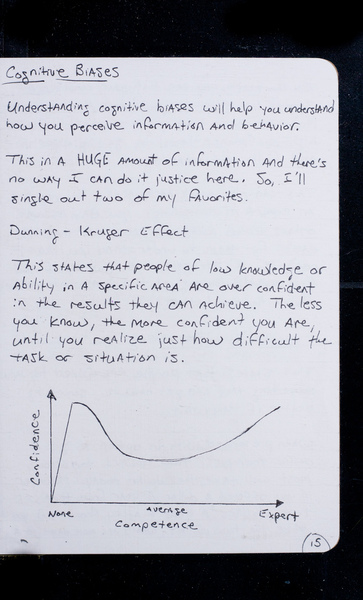 Cognitive Biases
Understanding cognitive biases will help you understand
how you perceive information and behavior.
This in a HUGE amount of information and there's
no way I can do it justice here. So, I'll
single out two of my favorites.
Dunning - Kruger Effect
This states that people of low knowledge or
ability in a specific area are over confident
in the results they can achieve. The less
you know, the more confident you are,
until you realize just how difficult the
task or situation is.
Confidence
None
Average
Expert
Competence
15